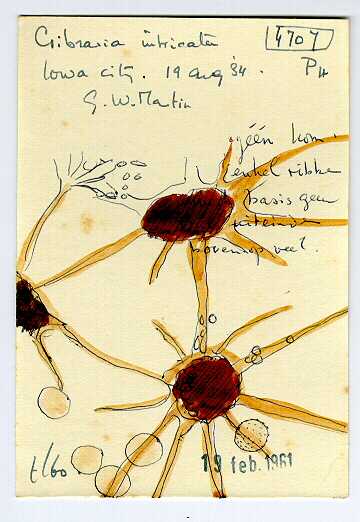 Cribraria intricata
4707
Iowa City. 19 aug '34.
PH
G. W. Martin
géén kom
enkel ribbe
basis geen
uitende
bovenop veel.
t/60
13 feb. 1961